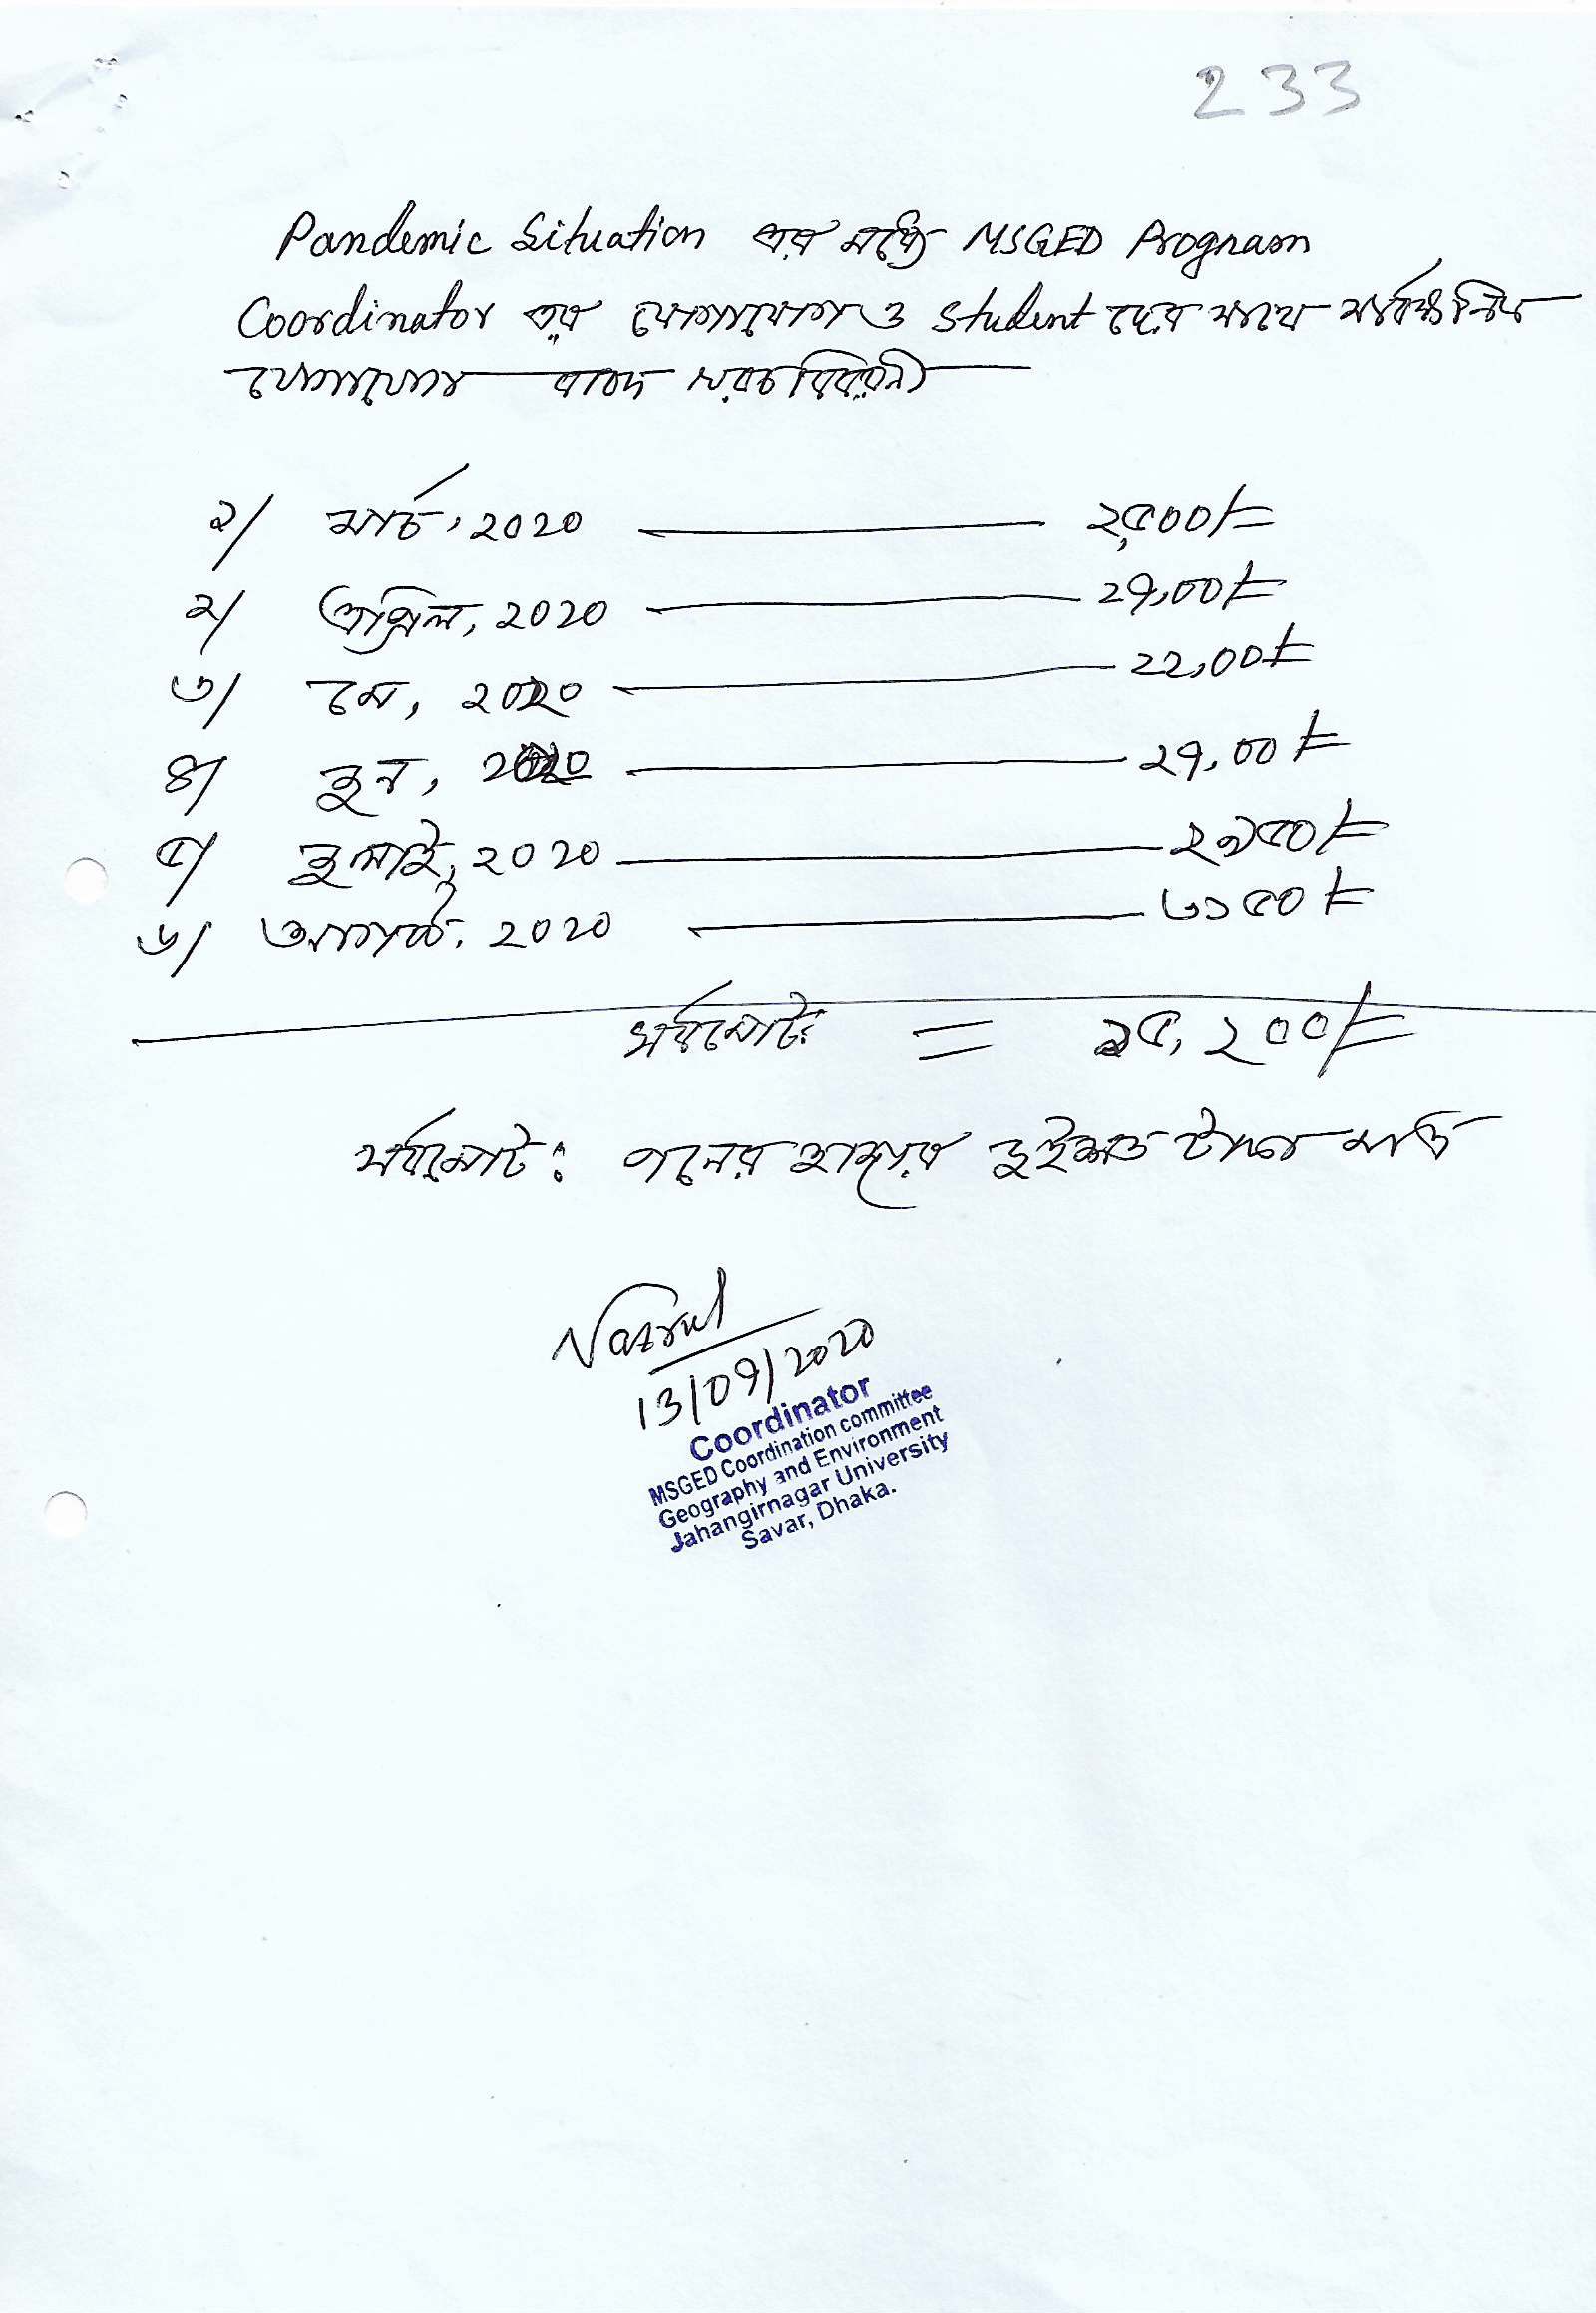 233
Pandemic Situation এর মধ্যে MSGED Program
Coordinator এর যোগাযোগ ও Student দের সাথে সার্বক্ষনিক
যোগাযোগ বাবদ খরচ বিবরনী
১/ মার্চ, ২০২০ ২,৫০০/=
২/ এপ্রিল, ২০২০ ২৭,০০/=
৩/ মে, ২০২০ ২২,০০/=
৪/ জুন, ২০২০ ২৭,০০/=
৫/ জুলাই, ২০২০ ২৯৫০/=
৬/ আগস্ট, ২০২০ ৩১৫০/=
সর্বমোট: = ১৫,২০০/=
সর্বমোট: পনের হাজার দুইশত টাকা মাত্র
Nazrul
13/09/2020
Coordinator
MSGED Coordination committee
Geography and Environment
Jahangirnagar University
Savar, Dhaka.